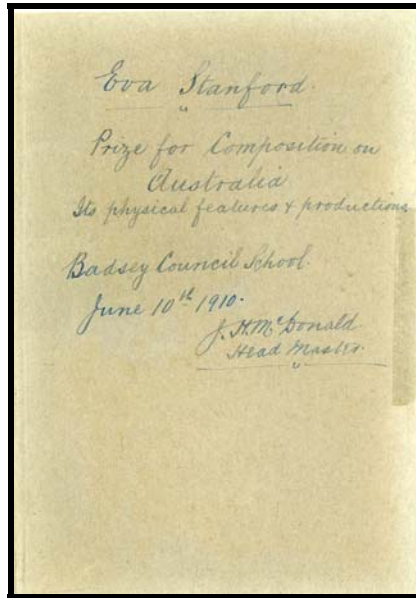 Eva Stanford.
Prize for Composition on
Australia
Its physical features & productions
Badsey Council School.
June 10th 1910.
J. H. McDonald
Head Master.